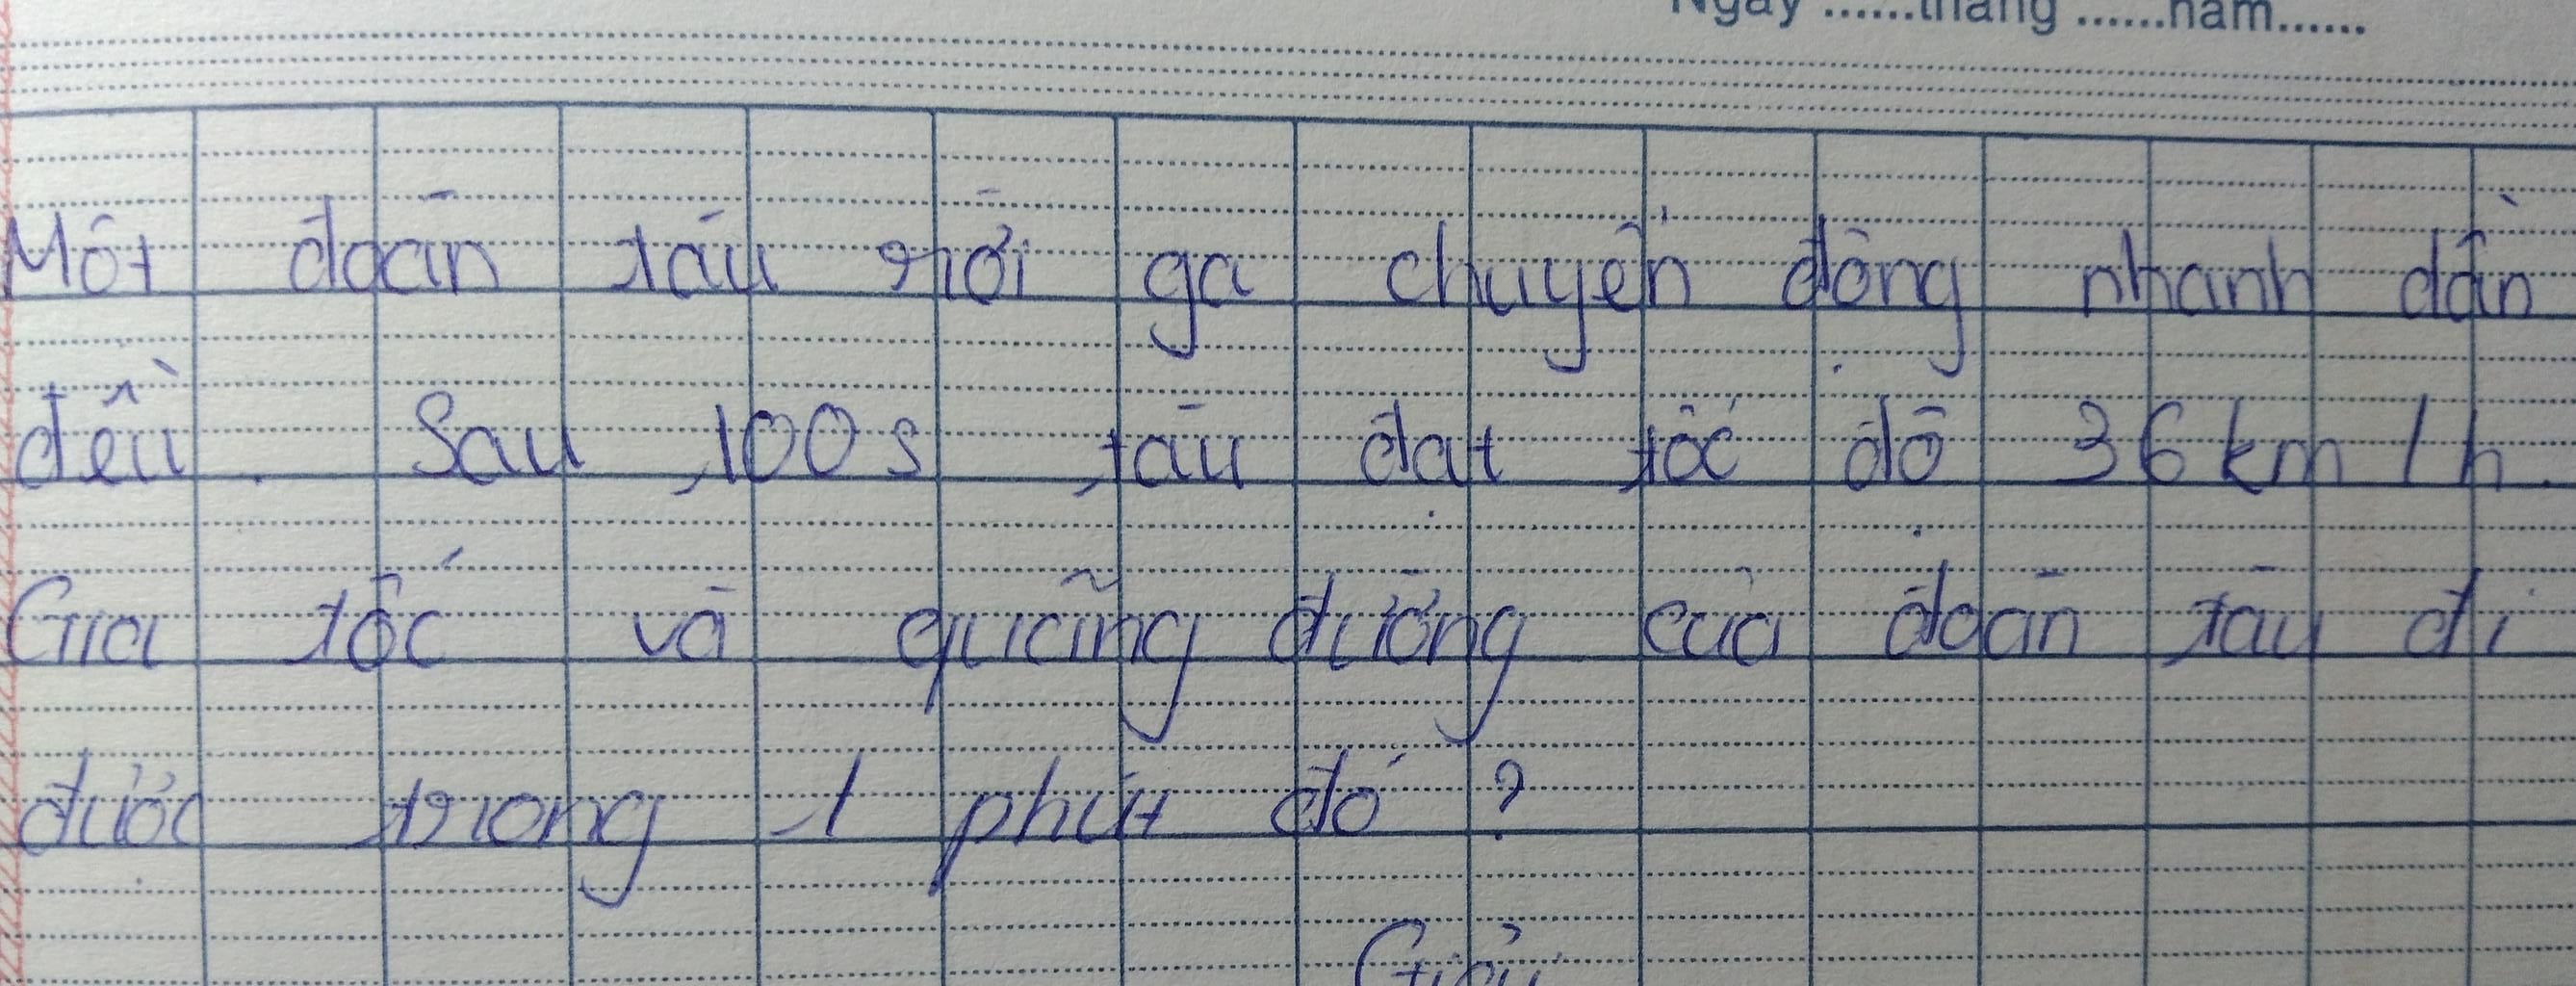 Ngày ......tháng ......năm......
Một đoàn tàu rời ga chuyển động nhanh dần
đều. Sau 100s tàu đạt tốc độ 36km/h.
Gia tốc và quãng đường của đoàn tàu đi
được trong 1 phút đó?
Giải